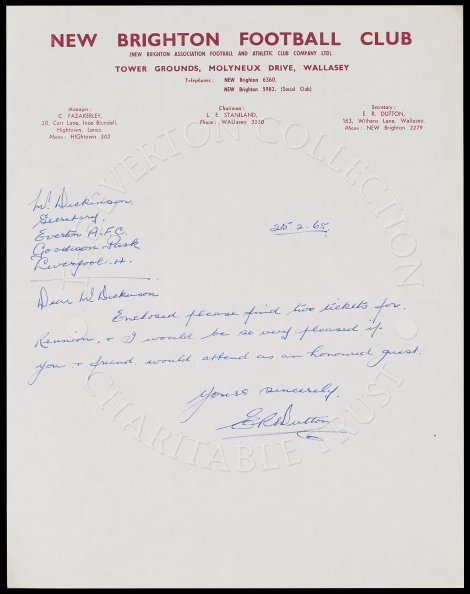 NEW BRIGHTON FOOTBALL CLUB
(NEW BRIGHTON ASSOCIATION FOOTBALL AND ATHLETIC CLUB COMPANY LTD).
TOWER GROUNDS, MOLYNEUX DRIVE, WALLASEY
Telephones: NEW Brighton 6360.
NEW Brighton 5983. (Social Club)
Manager:
C. FAZAKERLEY,
20, Carr Lane, Ince Blundell,
Hightown, Lancs.
Phone: HIGhtown 302
Chairman:
L. E. STANILAND,
Phone: WALlasey 3550
Secretary:
E. R. DUTTON,
163, Withens Lane, Wallasey.
Phone: NEW Brighton 2279
Mr Dickinson.
Secretary.
Everton A.F.C.
Goodison Park
Liverpool. 4.
25.2.65.
Dear Mr Dickinson
Enclosed please find two tickets for
Reunion, & I would be so very pleased if
you & friend would attend as an honoured guest.
Yours sincerely.
E R Dutton
EVERTON COLLECTION
CHARITABLE TRUST